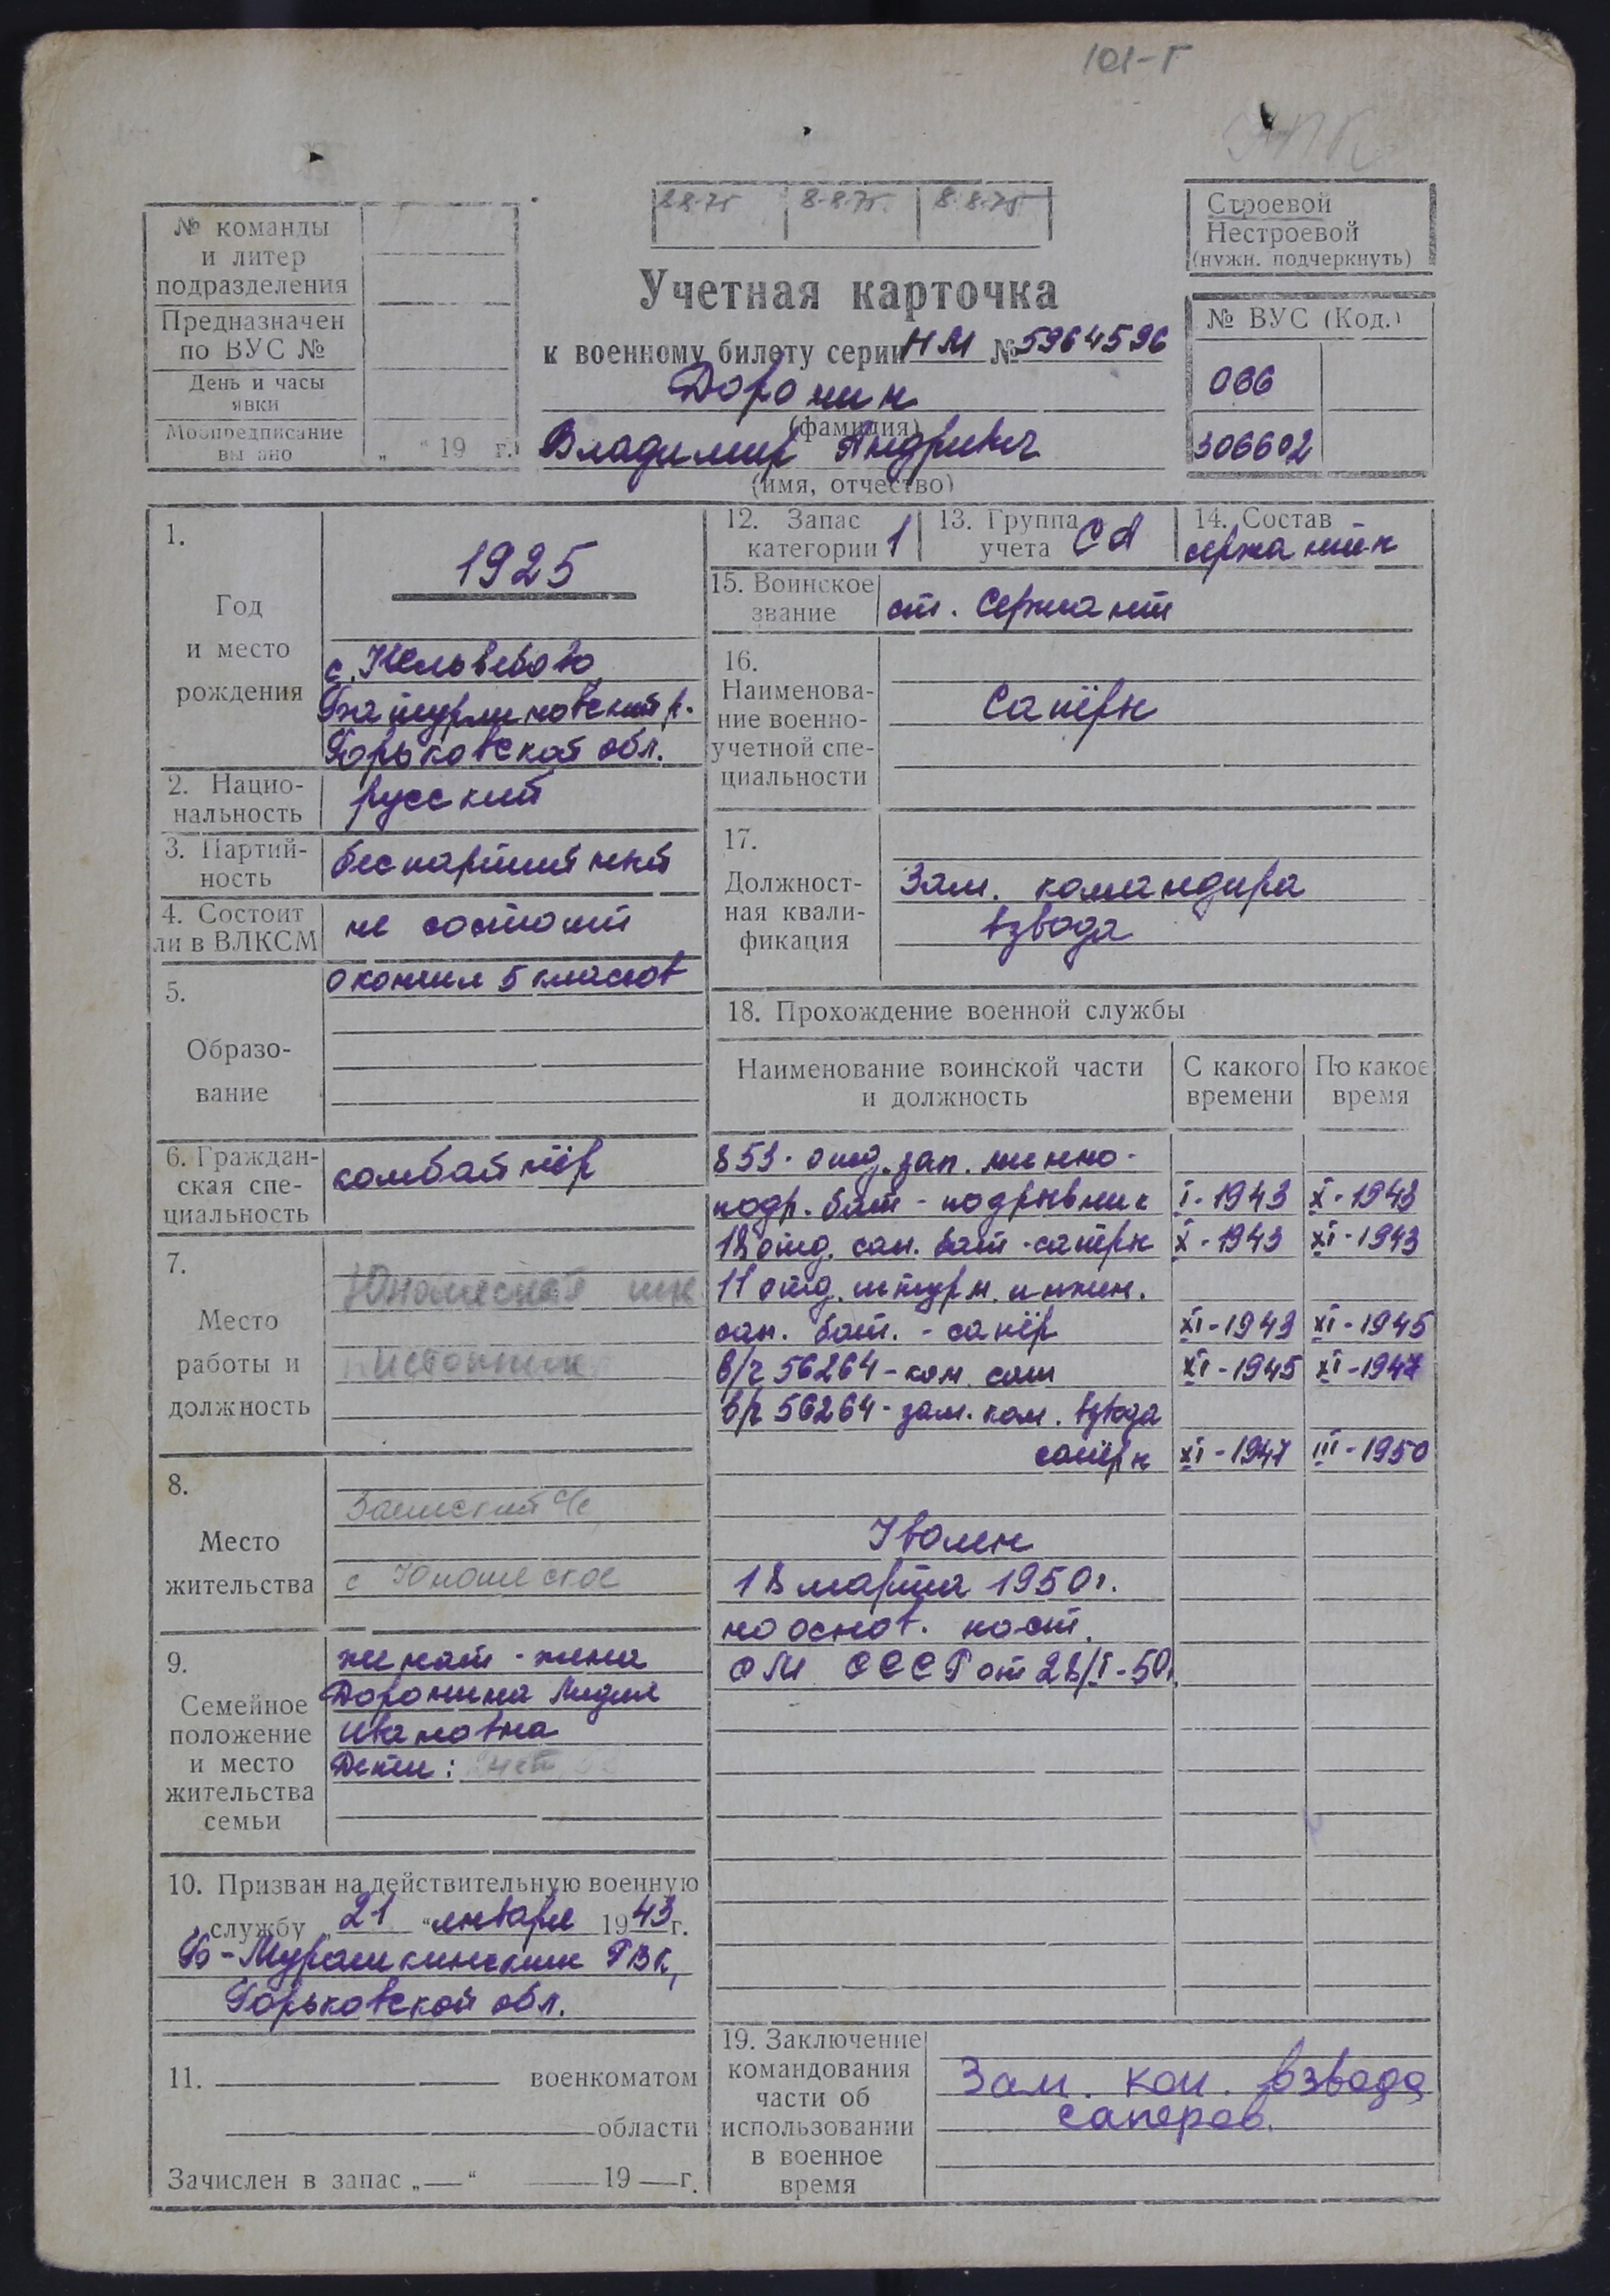 101-Г
8-8-75 8-8-75 8-8-75
№ команды
и литер
подразделения
Предназначен
по ВУС №
День и часы
явки
Мобпредписание
вы ано
„ “ 19 г.
Учетная карточка
к военному билету серии НМ № 5964596
Доронин
(фамилия)
Владимир Андреевич
(имя, отчество)
Строевой
Нестроевой
(нужн. подчеркнуть)
№ ВУС (Код.)
066
306602
1.
Год
и место
рождения
1925
Горьковской обл.
2. Нацио-
нальность
русский
3. Партий-
ность
беспартийный
4. Состоит
ли в ВЛКСМ
не состоит
5.
Образо-
вание
окончил 5 классов
6. Граждан-
ская спе-
циальность
комбайнёр
7.
Место
работы и
должность
8.
Место
жительства
с Юношеское
9.
Семейное
положение
и место
жительства
семьи
женат - жена
Доронина Лидия
Ивановна
Дети:
10. Призван на действительную военную
службу „21“ января 1943 г.
Б-Мурашкинским РВК,
Горьковской обл.
11. военкоматом
области
Зачислен в запас „—“ 19 — г.
12. Запас
категории 1
13. Группа
учета СА
14. Состав
15. Воинское
звание
ст. сержант
16.
Наименова-
ние военно-
учетной спе-
циальности
Сапёры
17.
Должност-
ная квали-
фикация
Зам. командира
взвода
18. Прохождение военной службы
Наименование воинской части
и должность
С какого
времени
По какое
время
853 отд. зап. минно-
подр. бат - подрывник I-1943 X-1943
18 отд. сап. бат - сапёр X-1943 XI-1943
11 отд. штурм. инжен.
сап. бат. - сапёр XI-1943 XI-1945
в/ч 56264 - ком. XI-1945 XI-1947
в/ч 56264 - зам. ком. взвода
сапёрн XI-1947 III-1950
Уволен
18 марта 1950 г.
на основ. пост.
СМ СССР от 28/I-50.
19. Заключение
командования
части об
использовании
в военное
время
Зам. ком. взвода
саперов.